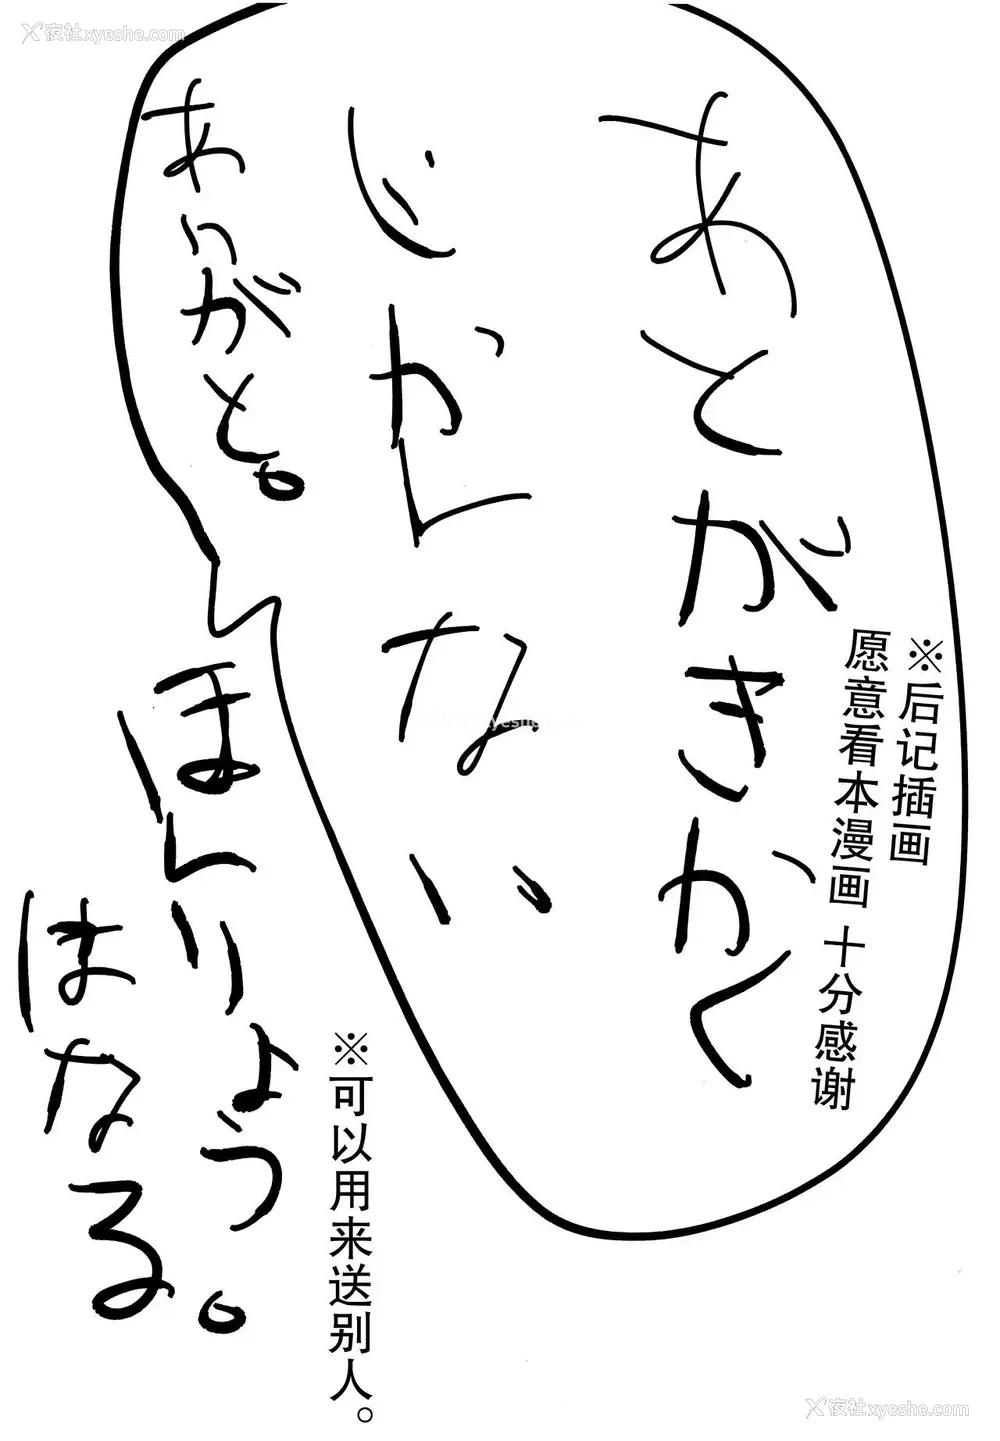 夜社xyeshe.com
あとがきかく
じかんない
ありがと。
※后记插画
愿意看本漫画 十分感谢
ほんりょう。
はなる
※可以用来送别人。
夜社xyeshe.com